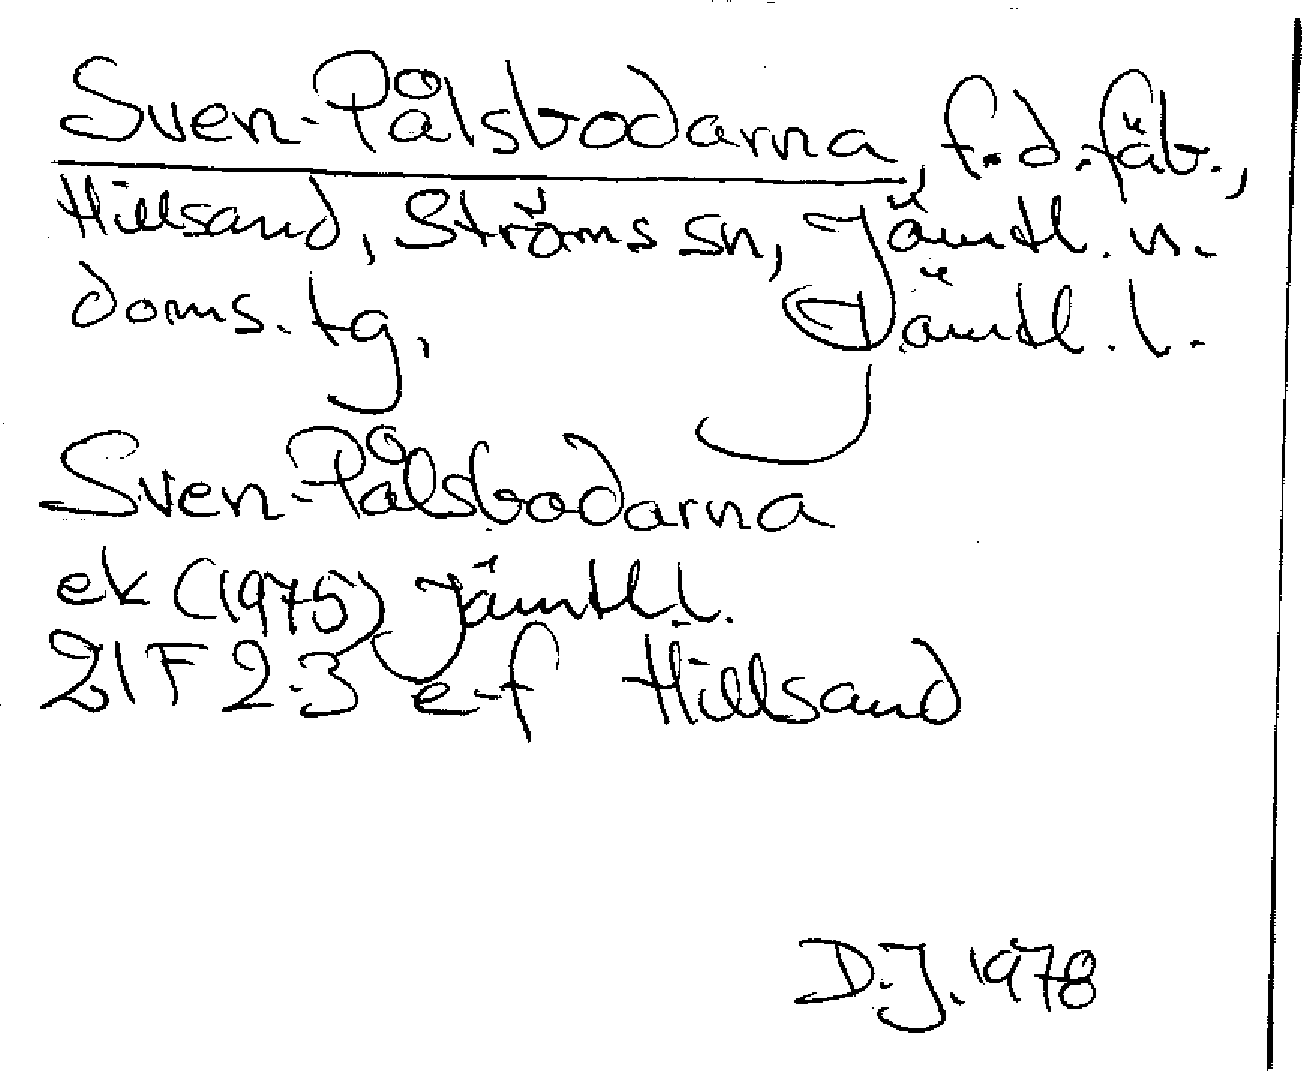 Sven-Pålsbodarna, f.d.fäb.,
Hillsand, Ströms sn, Jämtl. n.
doms.tg, Jämtl. l.
Sven-Pålsbodarna
ek (1975) Jämtl.l.
21F 2-3 e-f Hillsand
D.J. 1978